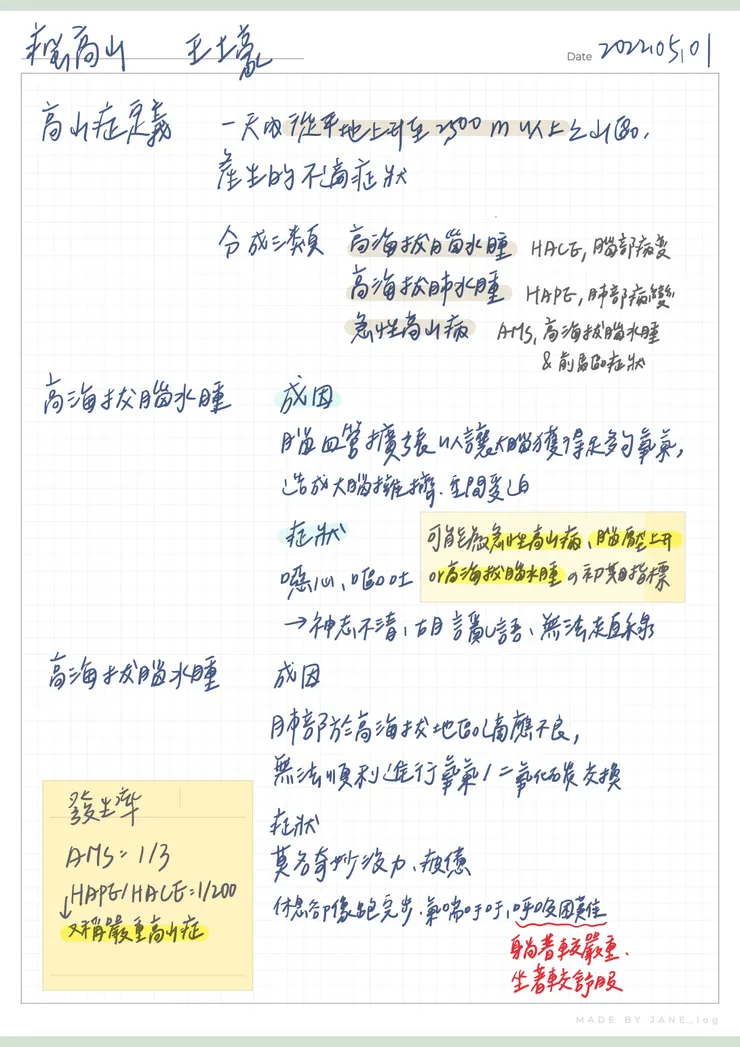 瘋高山 王士豪
Date 2022.05.01
高山症定義 一天內從平地上升至2,500 m以上之山區,
產生的不適症狀
分成三類 高海拔腦水腫 HACE, 腦部病變
高海拔肺水腫 HAPE, 肺部病變
急性高山病 AMS, 高海拔腦水腫
& 前區症狀
高海拔腦水腫 成因
腦血管擴張以讓大腦獲得足夠氧氣,
造成大腦擁擠、空間受迫
症狀
可能為急性高山病、腦壓上升
or高海拔腦水腫の初期指標
噁心、嘔吐
→神志不清、胡言亂語、無法走直線
高海拔腦水腫 成因
肺部於高海拔地區適應不良,
無法順利進行氧氣/二氧化碳交換
症狀
莫名奇妙沒力、疲憊
休息卻像跑完步、氣喘吁吁、呼吸困難
躺著較嚴重、
坐著較舒服
發生率
AMS=1/3
HAPE/HACE=1/200
↓又稱嚴重高山症
MADE BY JANE_log